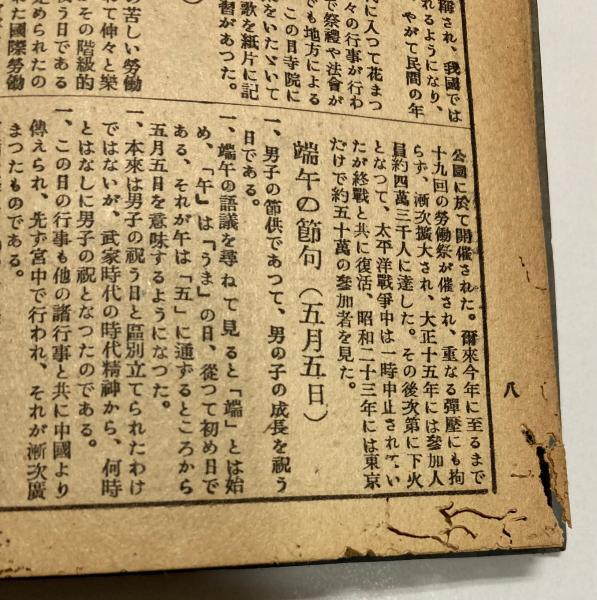 稱され、我國では
れるようになり、
やがて民間の年
に入つて花まつ
々の行事が行わ
で祭禮や法會が
でも地方による
この日寺院に
をいたゞいて
歌を紙片に記
習があつた。
の苦しい勞働
て仲々と樂
その階級的
う日である
められたの
た國際勞働
公園に於て開催された。爾來今年に至るまで
十九回の勞働祭が催され、重なる彈壓にも拘
らず、漸次擴大され、大正十五年には參加人
員約四萬三千人に達した。その後次第に下火
となつて、太平洋戰爭中は一時中止されてい
たが終戰と共に復活、昭和二十三年には東京
だけで約五十萬の參加者を見た。
端午の節句(五月五日)
一、男子の節供であつて、男の子の成長を祝う
日である。
一、端午の語議を尋ねて見ると「端」とは始
め、「午」は「うま」の日、從つて初め日で
ある、それが午は「五」に通ずるところから
五月五日を意味するようになつた。
一、本來は男子の祝う日と區別立てられたわけ
ではないが、武家時代の時代精神から、何時
とはなしに男子の祝となつたのである。
一、この日の行事も他の諸行事と共に中國より
傳えられ、先ず宮中で行われ、それが漸次廣
まつたものである。
八